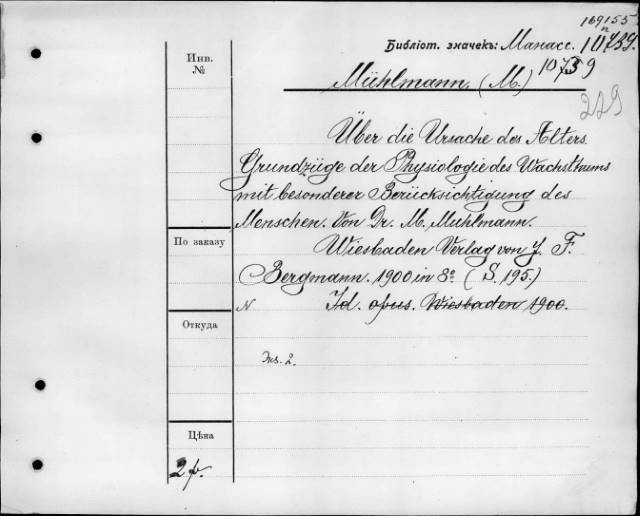 169155
n
Библіот. значекъ: Манасс. 10739.
10739
Инв.
№
Mühlmann. (M.)
229
Über die Ursache des Alters.
Grundzüge der Physiologie des Wachsthums
mit besonderer Berücksichtigung des
Menschen. Von Dr. M. Mühlmann.
По заказу
Wiesbaden Verlag von J. F.
Bergmann. 1900 in 8º (S. 195.)
N Id. opus. Wiesbaden 1900.
Откуда
Экз. 2.
Цѣна
2 р.